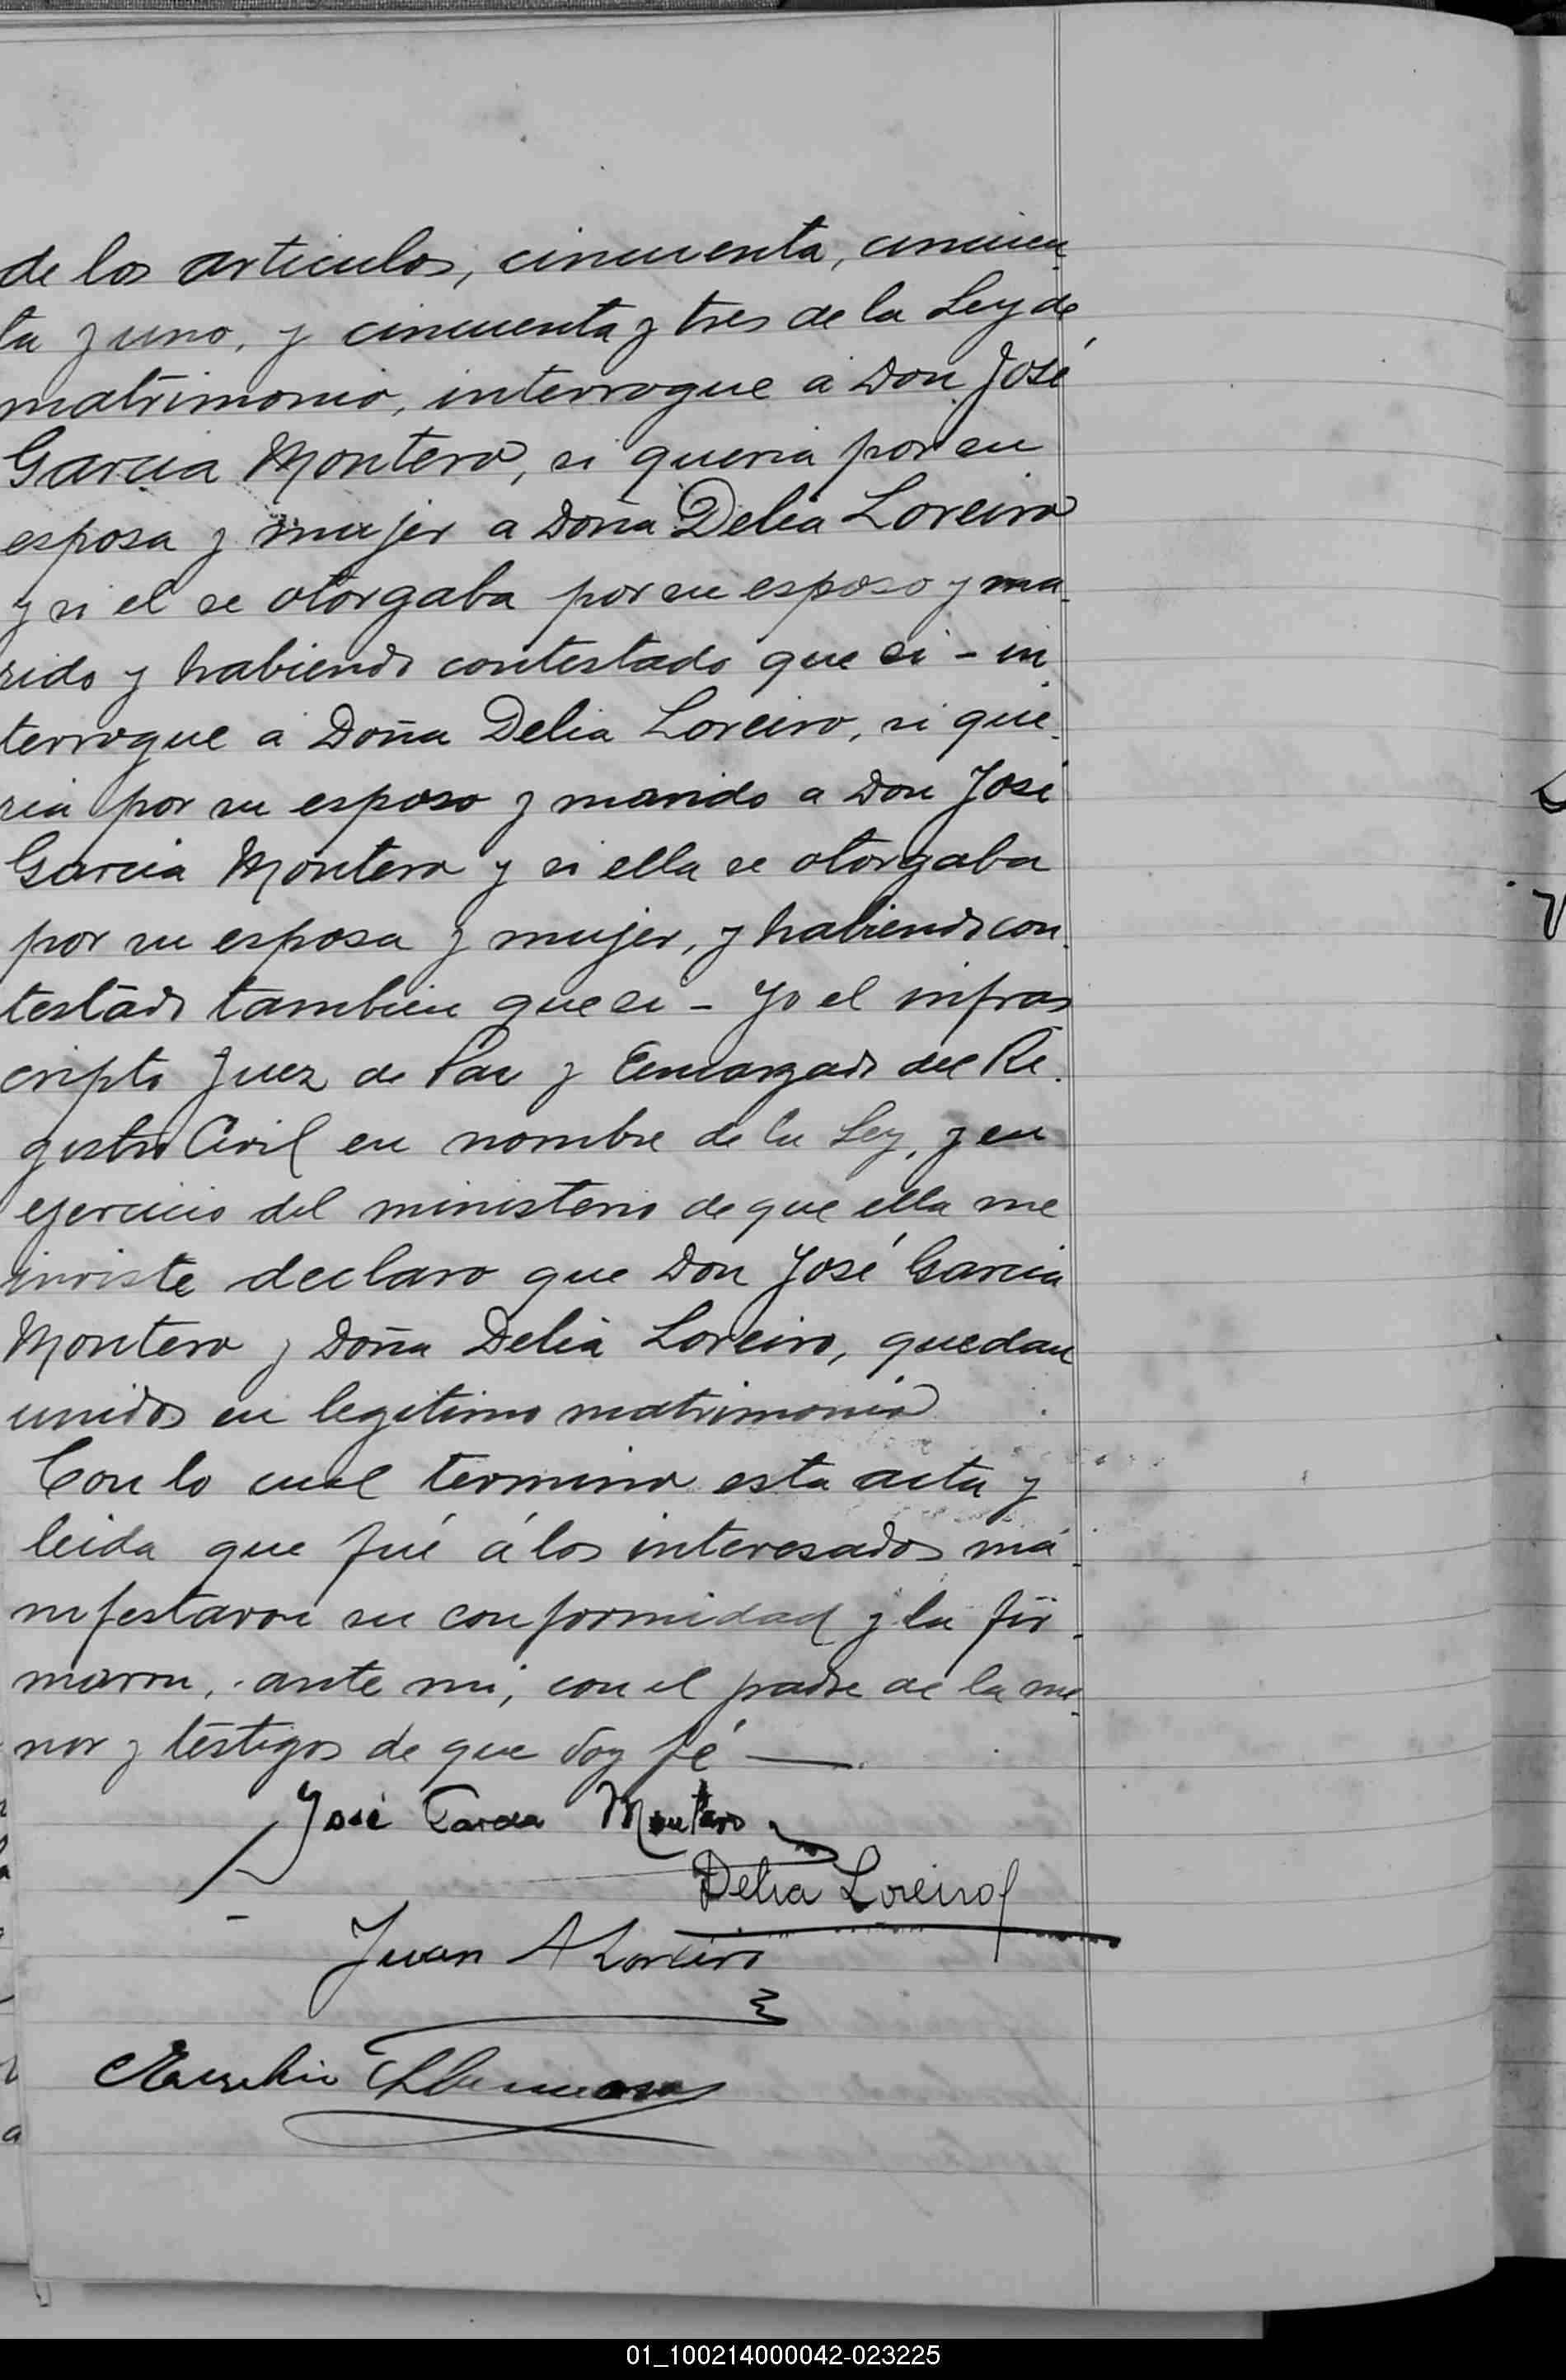 de los articulos, cincuenta, cincuen
ta y uno, y cincuenta y tres de la Ley de
matrimonio, interrogue a Don José
Garcia Montero, si queria por su
esposa y mujer a Doña Delia Loreiro
y si el se otorgaba por su esposo y ma-
rido y habiendo contestado que si - in-
terrogue a Doña Delia Loreiro, si que-
ria por su esposo y marido a Don José
Garcia Montero y si ella se otorgaba
por su esposa y mujer, y habiendo con-
testado tambien que si - Yo el infras
cripto Juez de Paz y Encargado del Re-
gistro Civil en nombre de la Ley, y en
ejercicio del ministerio de que ella me
inviste declaro que Don José Garcia
Montero y Doña Delia Loreiro, quedan
unidos en legitimo matrimonio
Con lo cual termino esta acta y
leida que fué á los interesados ma-
nifestaron su conformidad y la fir-
maron, ante mi, con el padre de la me-
nor y testigos de que doy fé —
José Garcia Montero
Delia Loreiro
Juan A Loreiro
01_100214000042-023225